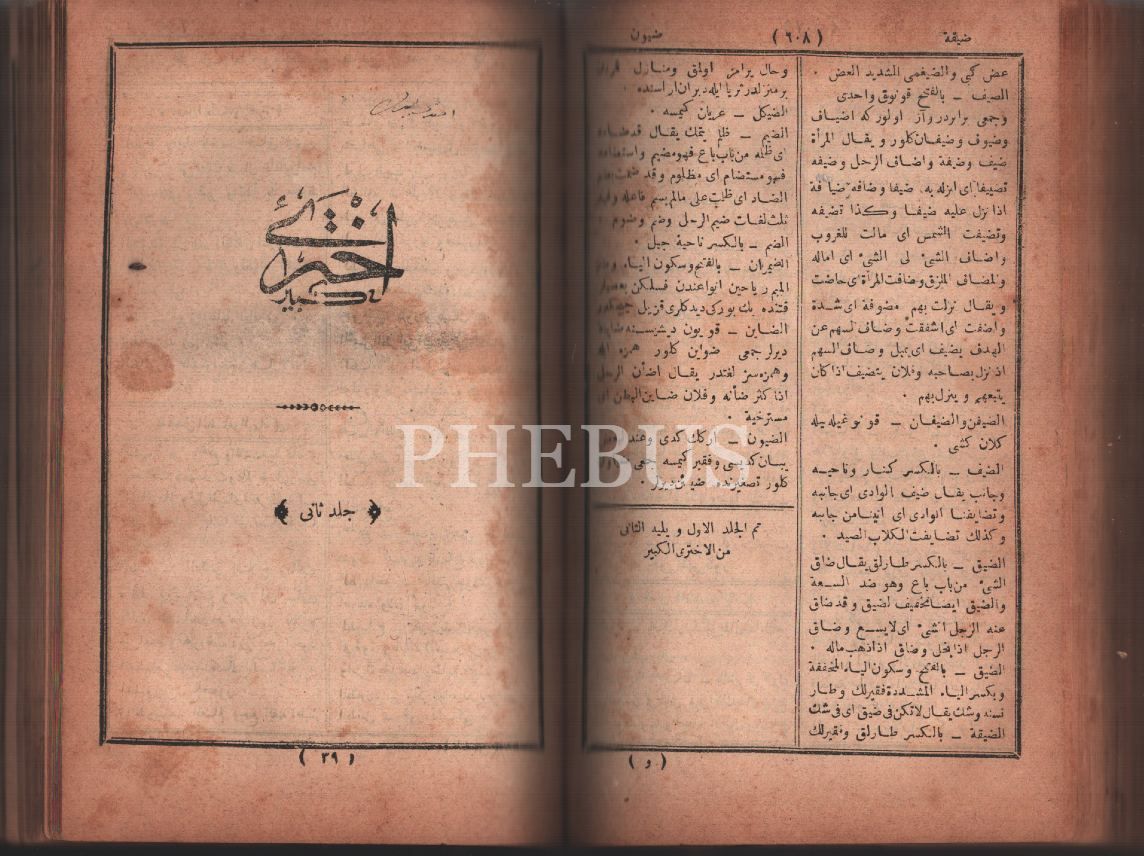 ضيقة
( ٦٠٨ )
ضيون
عض كبى والضيغمى الشديد العض .
الضيف ــ بالفتح قونوق واحدى
وجمعى برابردر وآز اولوركه اضياف
وضيوف وضيفان كلور ويقال المرأة
ضيف وضيفة واضاف الرجل وضيفه
تضييفا اى انزله به ضيفا وضافه ضيافة
اذا نزل عليه ضيفا وكذا تضيفه
وتضيفت الشمس اى مالت للغروب
واضاف الشئ الى الشئ اى اماله
والمضاف الملزق وضافت المرأة اى حاضت
ويقال نزلت بهم مضوفة اى شدة
واضفت اى اشفقت وضاف السهم عن
الهدف يضيف اى يميل وصاف السهم
اذ نزل بصاحبه وفلان يتضيف اذا كان
يتبعهم وينزل بهم .
الضيفن والضيفان ــ قونوغيله بيله
كلان كشى .
الضيف ــ بالكسر كنار وناحيه
وجانب يقال ضيف الوادى اى جانبه
وتضايفنا الوادى اى اتينا من جانبه
وكذلك تضايفت الكلاب الصيد .
الضيق ــ بالكسر طارلق يقال ضاق
الشئ من باب باع وهو ضد السعة
والضيق ايضا تخفيف لضيق وقد ضاق
عنه الرجل الشئ اى لا يسع وضاق
الرجل اذا بخل وضاق اذا ذهب ماله .
الضيق ــ بالفتح وسكون الياء المخففة
وبكسر الياء المشددة فقيرلك وطار
نسنه وشك يقال لا تكن فى ضيق اى فى شك
الضيقة ــ بالكسر طارلق وفقيرلك
وحال يرامز اولمق ومنازل
بر منزلدر ثريا ايله دبران اراسنده .
الضيكل ــ عريان كيمسه .
الضيم ــ ظلم يتمك يقال قد ضامه
اى ظلمه من باب باع فهو مضيم واستضامه
فهو مستضام اى مظلوم وقد ضمت بضم
الضاد اى ظلمت على مالم يسم فاعله وفيه
ثلث لغات ضيم الرجل وضم وضوم .
الضيم ــ بالكسر ناحية جبل .
الضيمران ــ بالفتح وسكون الياء وضم
الميم رياحين انواعندن فسلكن
قتنده بك بوركى ديدكلرى قزيل
الضاين ــ قويون ديشيسنه ضاينه
ديرلر جمعى ضواين كلور همزه ايله
وهمزه سز لغتدر يقال اضأن الرجل
اذا كثر ضأنه وفلان ضاين البطن اى
مسترخية .
الضيون ــ اركك كدى وعند
يبان كديسى وفقير كيمسه جمعى
كلور تصغيرنده ضيين ديرلر .
تم الجلد الاول ويليه الثانى
من الاخترى الكبير
( و )
اخترى
كبير
جلد ثانى
( ٣٩ )
PHEBUS